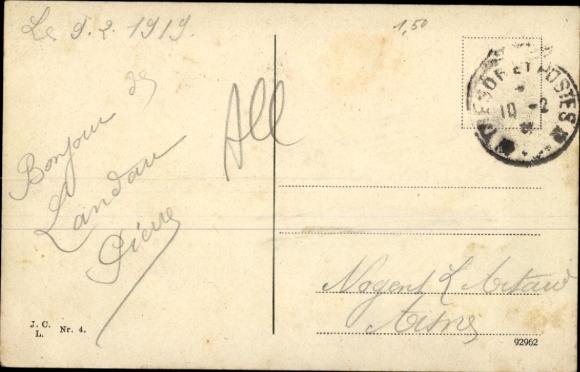 Le 9.2.1919.
Bonjour de
Landau
Pierre
All
1,50
TRESOR ET POSTES
10 -2
Nogent L Artaud
Aisne
J. C. L. Nr. 4.
92962